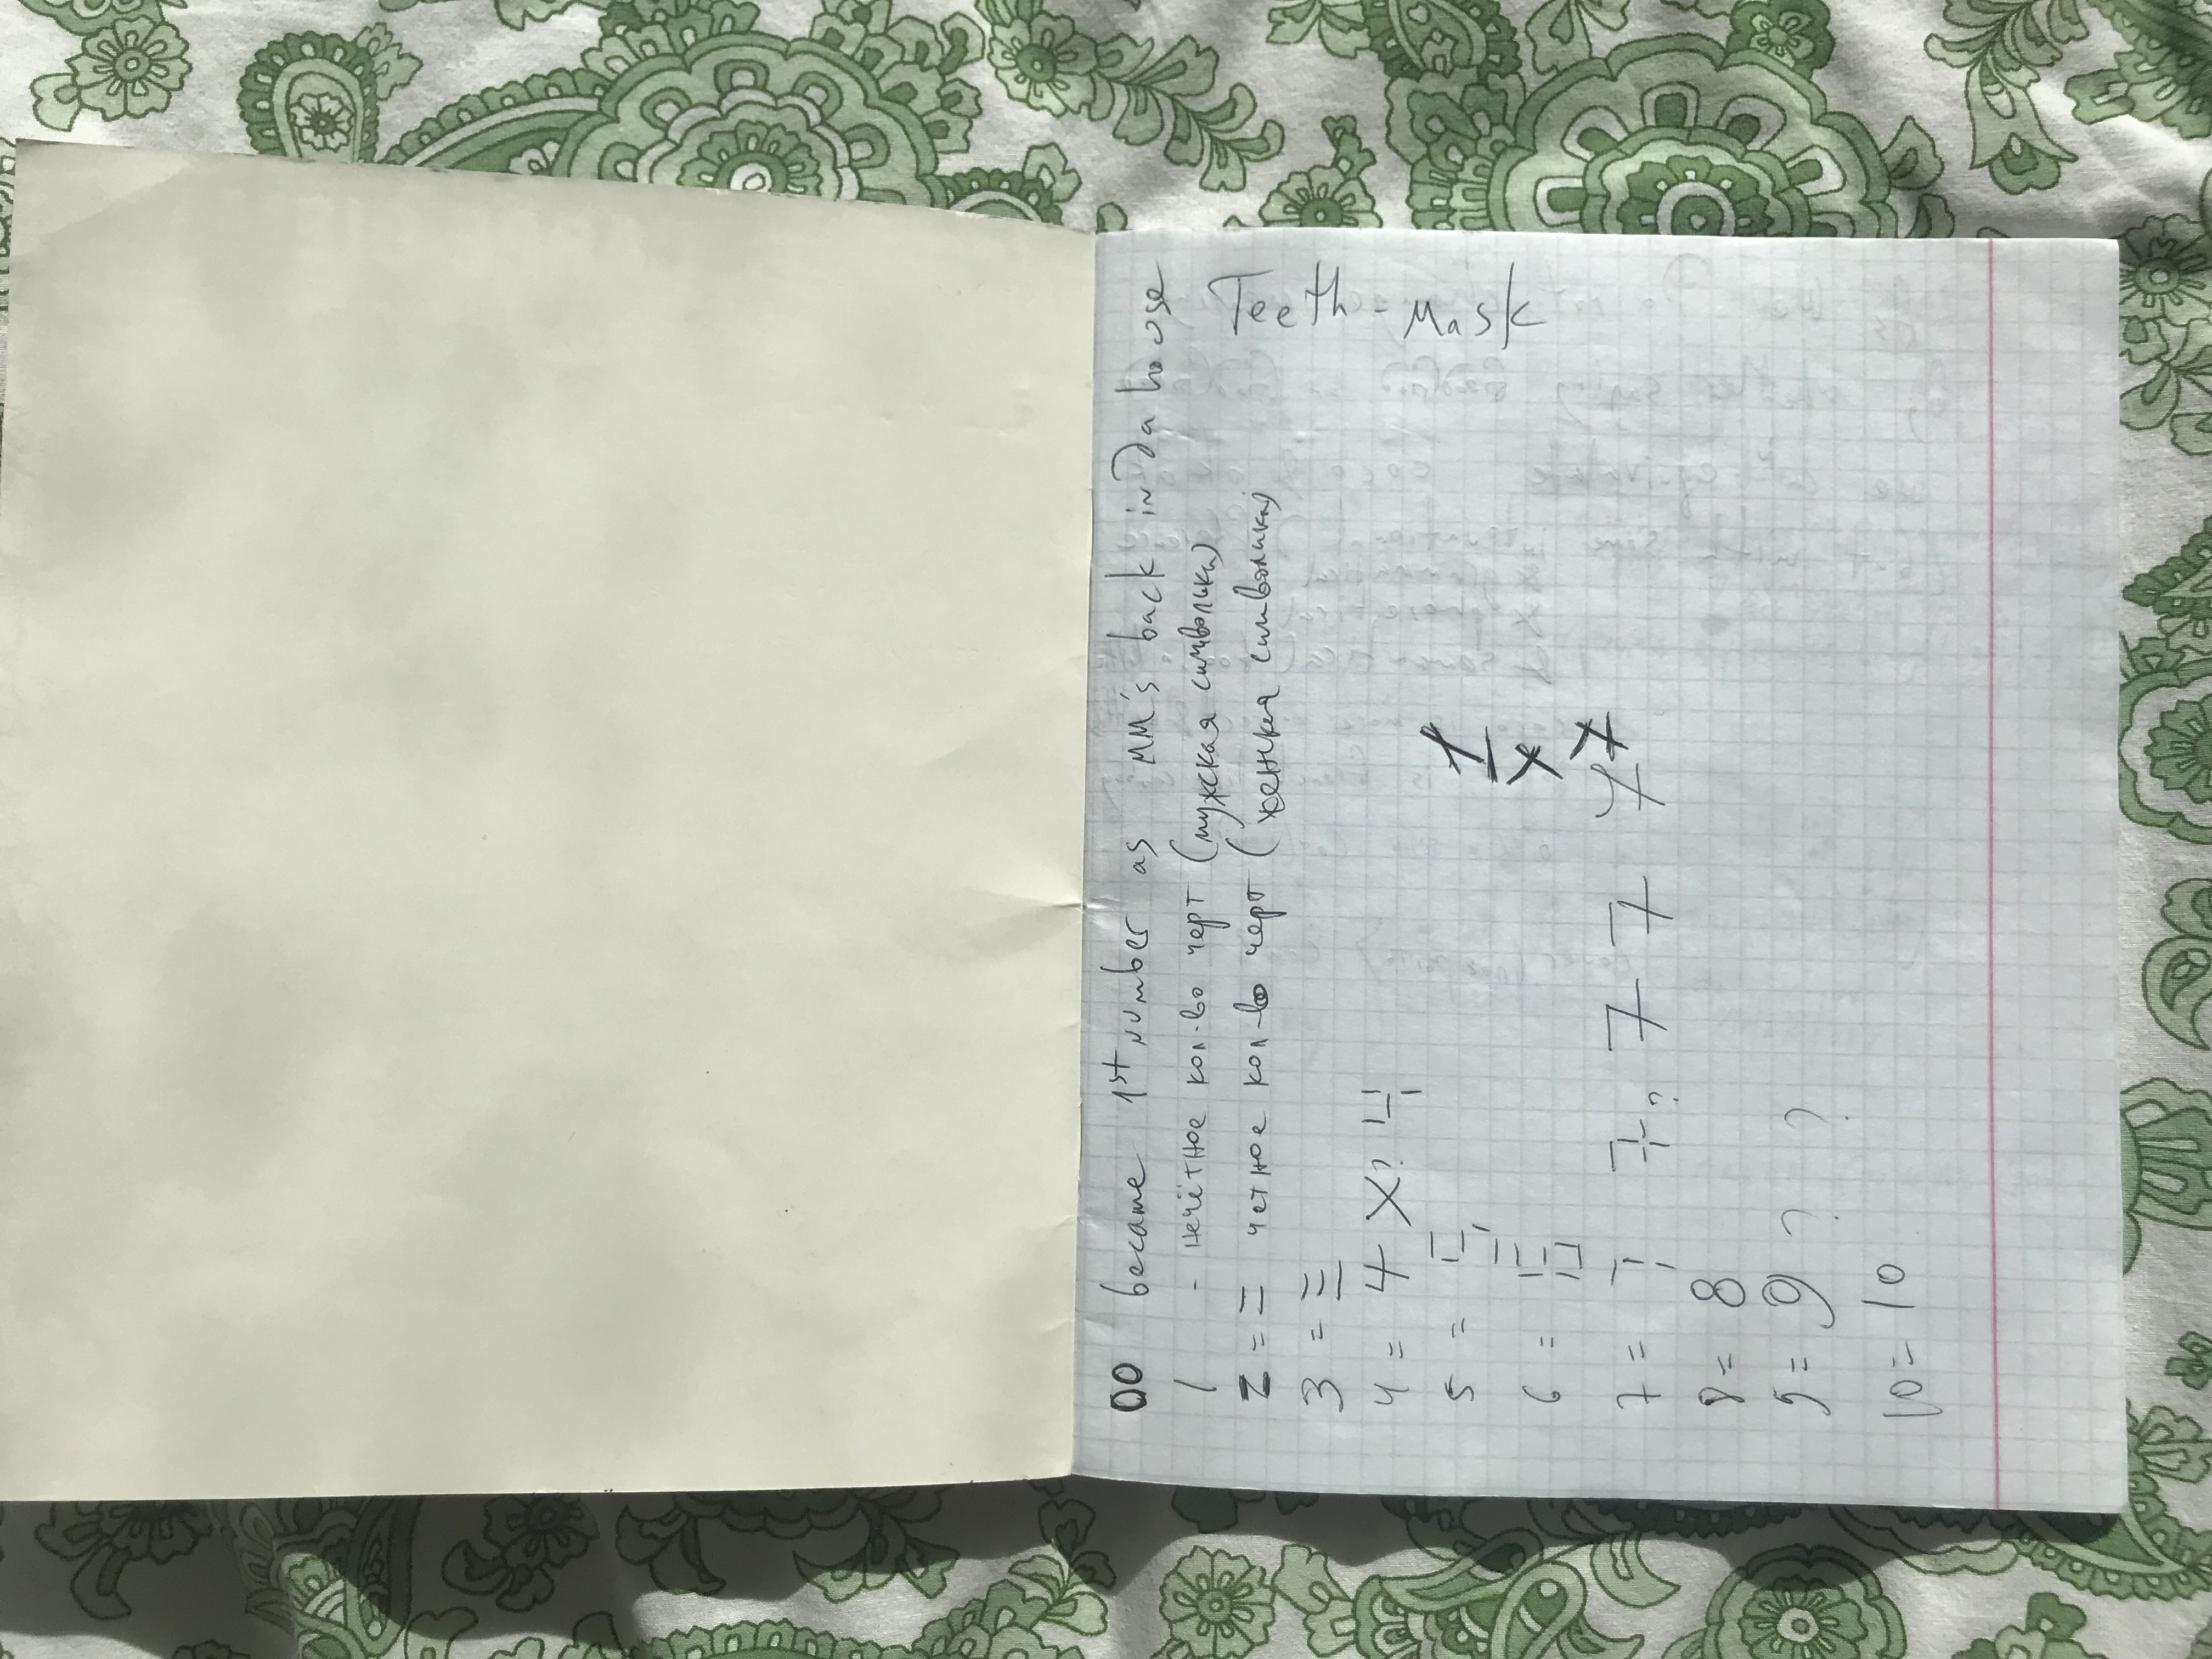 00 became 1st number as MM's back in da house
1 - нечётное кол-во черт (мужская символика)
2 = = четное кол-во черт (женская символика)
3 = Ξ
4 = 4 X? 4
5 = 5
6 = 6
7 = 7 7? 7 7 7
8 = 8
9 = 9 ? ?
10 = 10
1
X
7
Teeth = Mask